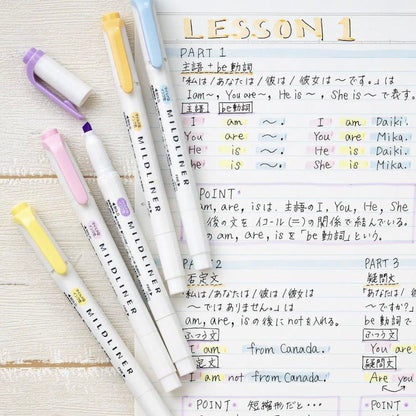 LESSON 1
PART 1
主語 + be動詞
「私は / あなたは / 彼は / 彼女は 〜です。」は
I am〜, You are〜, He is 〜, She is 〜 で表す。
主語 be動詞
I am 〜. I am Daiki.
You are 〜. You are Mika.
He is 〜. He is Daiki.
She is 〜. She is Mika.
POINT
am, are, is は、主語の I, You, He, She
後の文を イコール (=) の関係で結んでいる。
am, are, is を「be動詞」という。
2
否定文
「私は / あなたは / 彼は / 彼女は
〜ではありません。」は
am, are, is の後に not を入れる。
ふつう文
I am from Canada.
定文
I am not from Canada.
POINT 短縮形だと…
PART 3
疑問文
「あなたは /
〜ですか?
be動詞で
ふつう文
You are
疑問文
Are you
POINT
MILDLINER
MILDLINER
MILDLINER
MILDLINER
MILDLINER